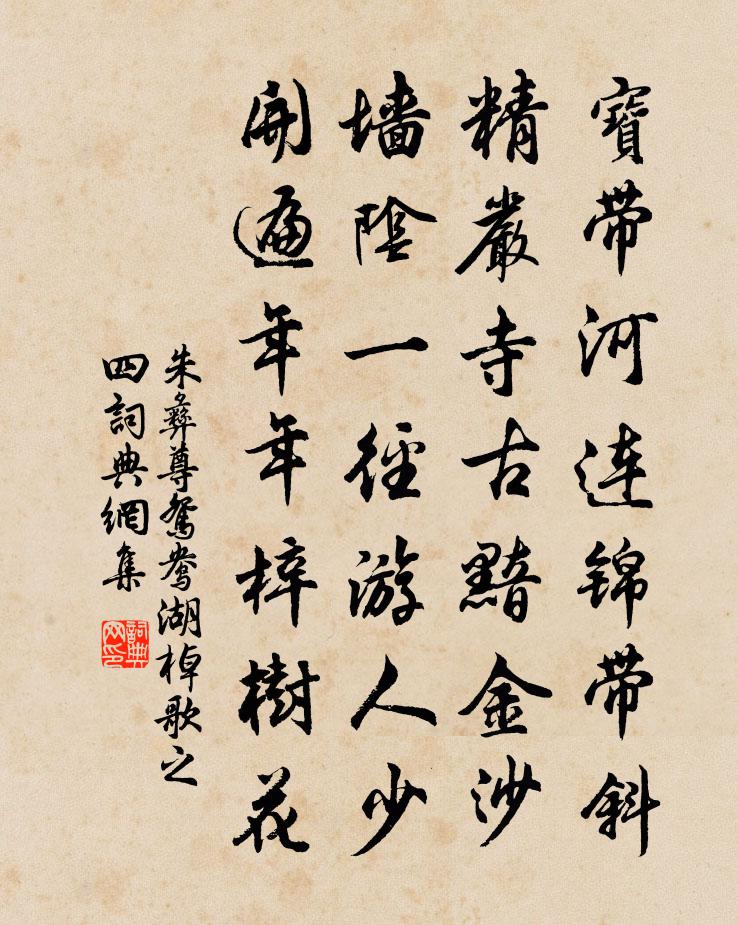 寶帶河連錦帶斜
精嚴寺古黯金沙
墻陰一徑游人少
開遍年年梓樹花
朱彝尊鴛鴦湖棹歌之
四詞典網集
詞典网印